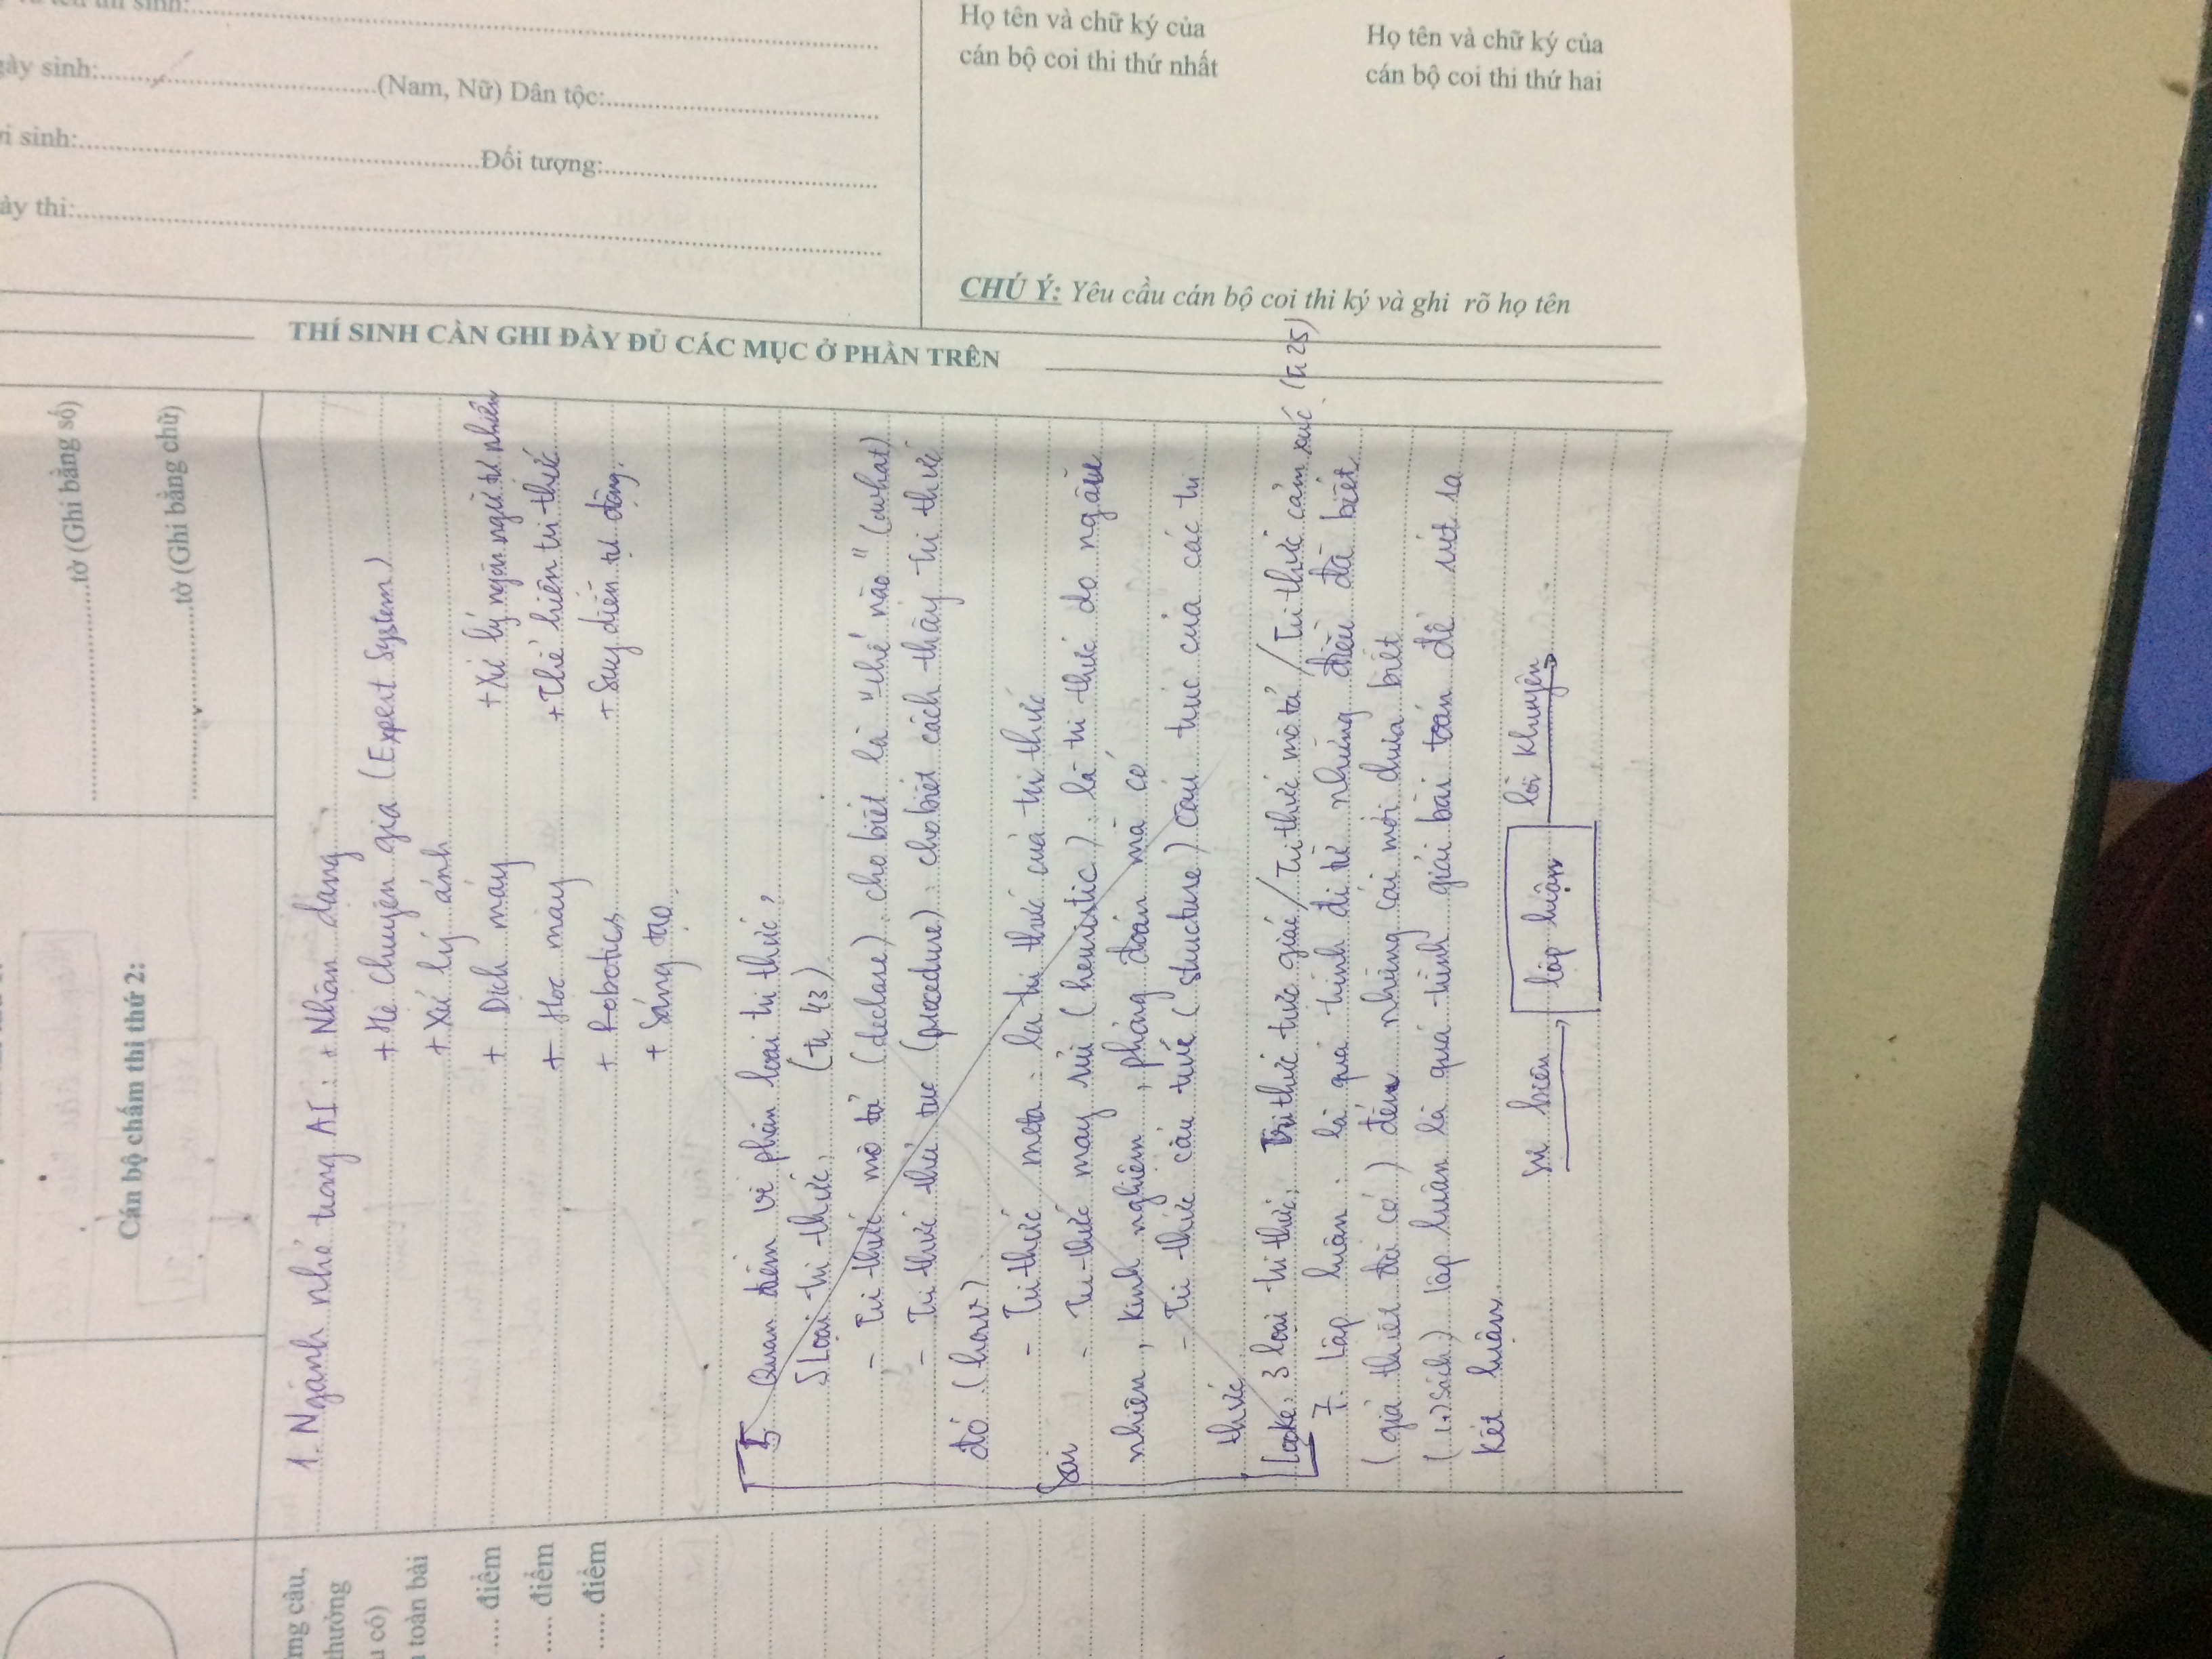 Cán bộ chấm thi thứ 2:
tờ (Ghi bằng số)
tờ (Ghi bằng chữ)
câu,
thưởng
có)
toàn bài
..... điểm
..... điểm
..... điểm
1. Ngành nhỏ trong AI : + Nhận dạng
+ Hệ chuyên gia (Expert System)
+ Xử lý ảnh
+ Dịch máy + Xử lý ngôn ngữ tự nhiên
+ Học máy + Thể hiện tri thức
+ Robotics + Suy diễn tự động.
+ Sáng tạo.
5 Quan điểm về phân loại tri thức,
5 Loại tri thức, (tr 43).
- Tri thức mô tả (declare) : cho biết là "thế nào" (what)
- Tri thức thủ tục (procedure) : cho biết cách thấy tri thức
đó (how)
- Tri thức meta : là tri thức của tri thức
Sai
- Tri thức may rủi (heuristic) : là tri thức do ngẫu
nhiên, kinh nghiệm, phỏng đoán mà có
- Tri thức cấu trúc (structure) cấu trúc của các tri
thức.
Locke, 3 loại tri thức, Tri thức trực giác / Tri thức mô tả / Tri thức cảm xúc (tr 25)
7. Lập luận : là quá trình đi từ những điều đã biết
(giả thiết đã có) đến những cái mới chưa biết
sách) lập luận là quá trình giải bài toán để rút ra
kết luận.
sự kiện lập luận lời khuyên
THÍ SINH CẦN GHI ĐẦY ĐỦ CÁC MỤC Ở PHẦN TRÊN
CHÚ Ý: Yêu cầu cán bộ coi thi ký và ghi rõ họ tên
thi:
sinh:
Đối tượng:
sinh:
(Nam, Nữ) Dân tộc:
Họ tên và chữ ký của
cán bộ coi thi thứ nhất
Họ tên và chữ ký của
cán bộ coi thi thứ hai